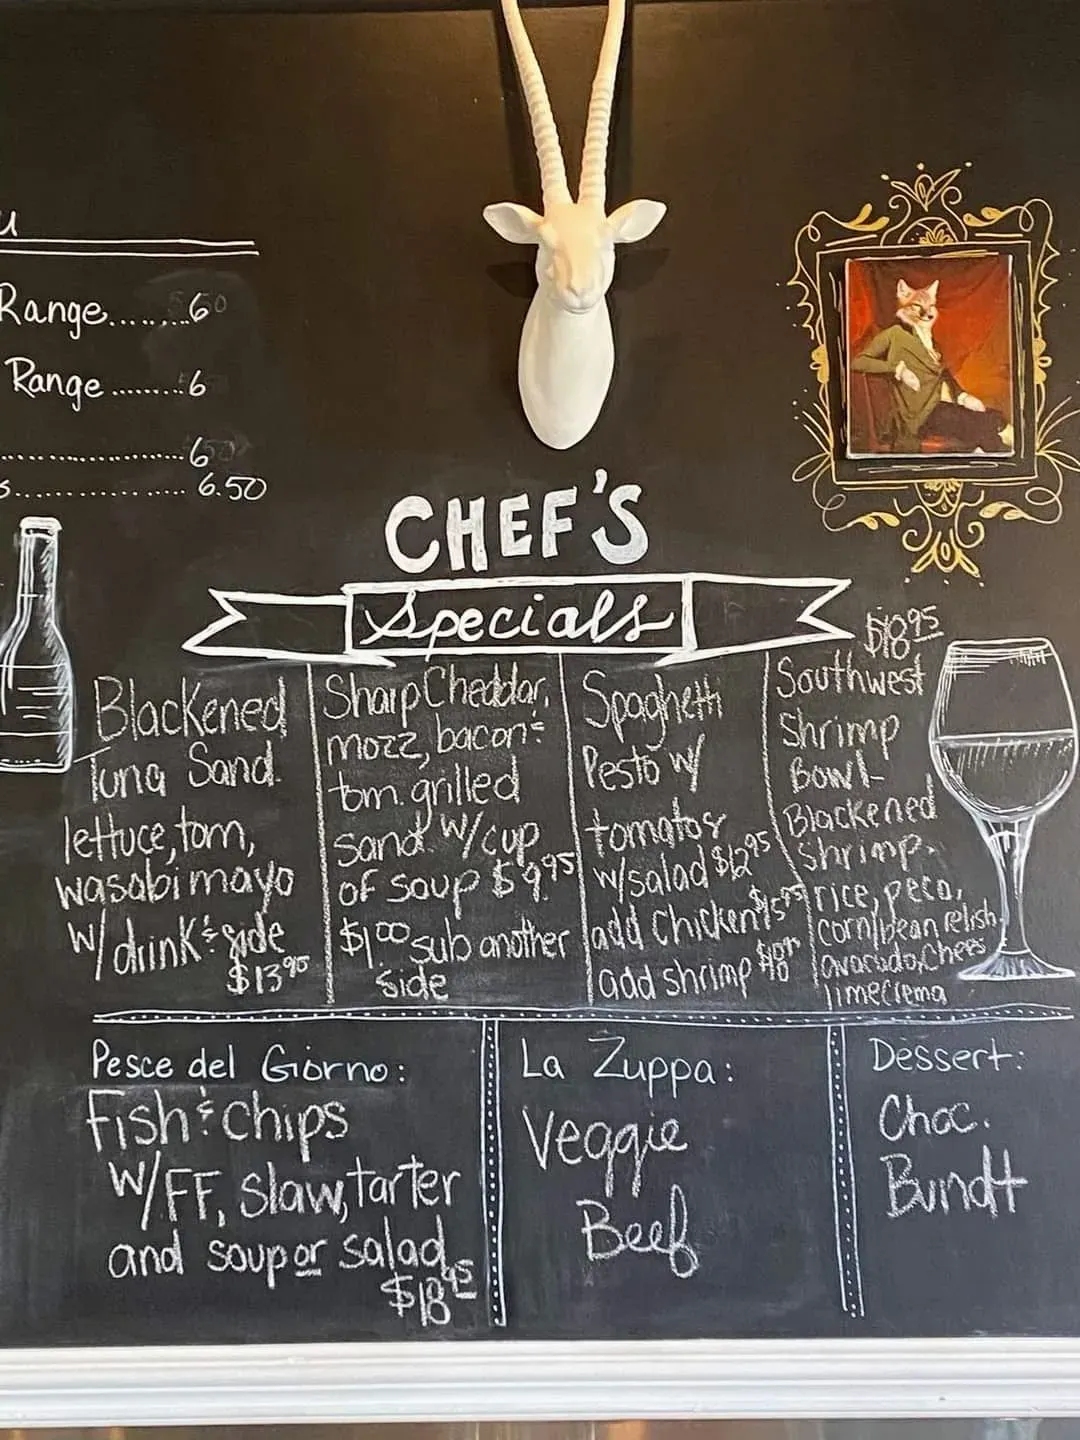 Range........6
Range ........6
.................6
s.............. 6.50
CHEF'S
Specials
Blackened
Tuna Sand.
lettuce, tom,
wasabi mayo
w/drink & side
$13.95
Sharp Cheddar,
mozz, bacon &
tom. grilled
sand. w/cup
of soup $9.95
$1.00 sub another
side
Spaghetti
Pesto w/
tomatos
w/salad $12.95
add chicken $15.95
add shrimp
$18.95
Southwest
Shrimp
Bowl-
Blackened
Shrimp,
rice, peco,
corn/bean relish
avacado, Chees
lime crema
Pesce del Giorno:
Fish & chips
w/FF, slaw, tarter
and soup or salad
$18.95
La Zuppa:
Veggie
Beef
Dessert:
Choc.
Bundt